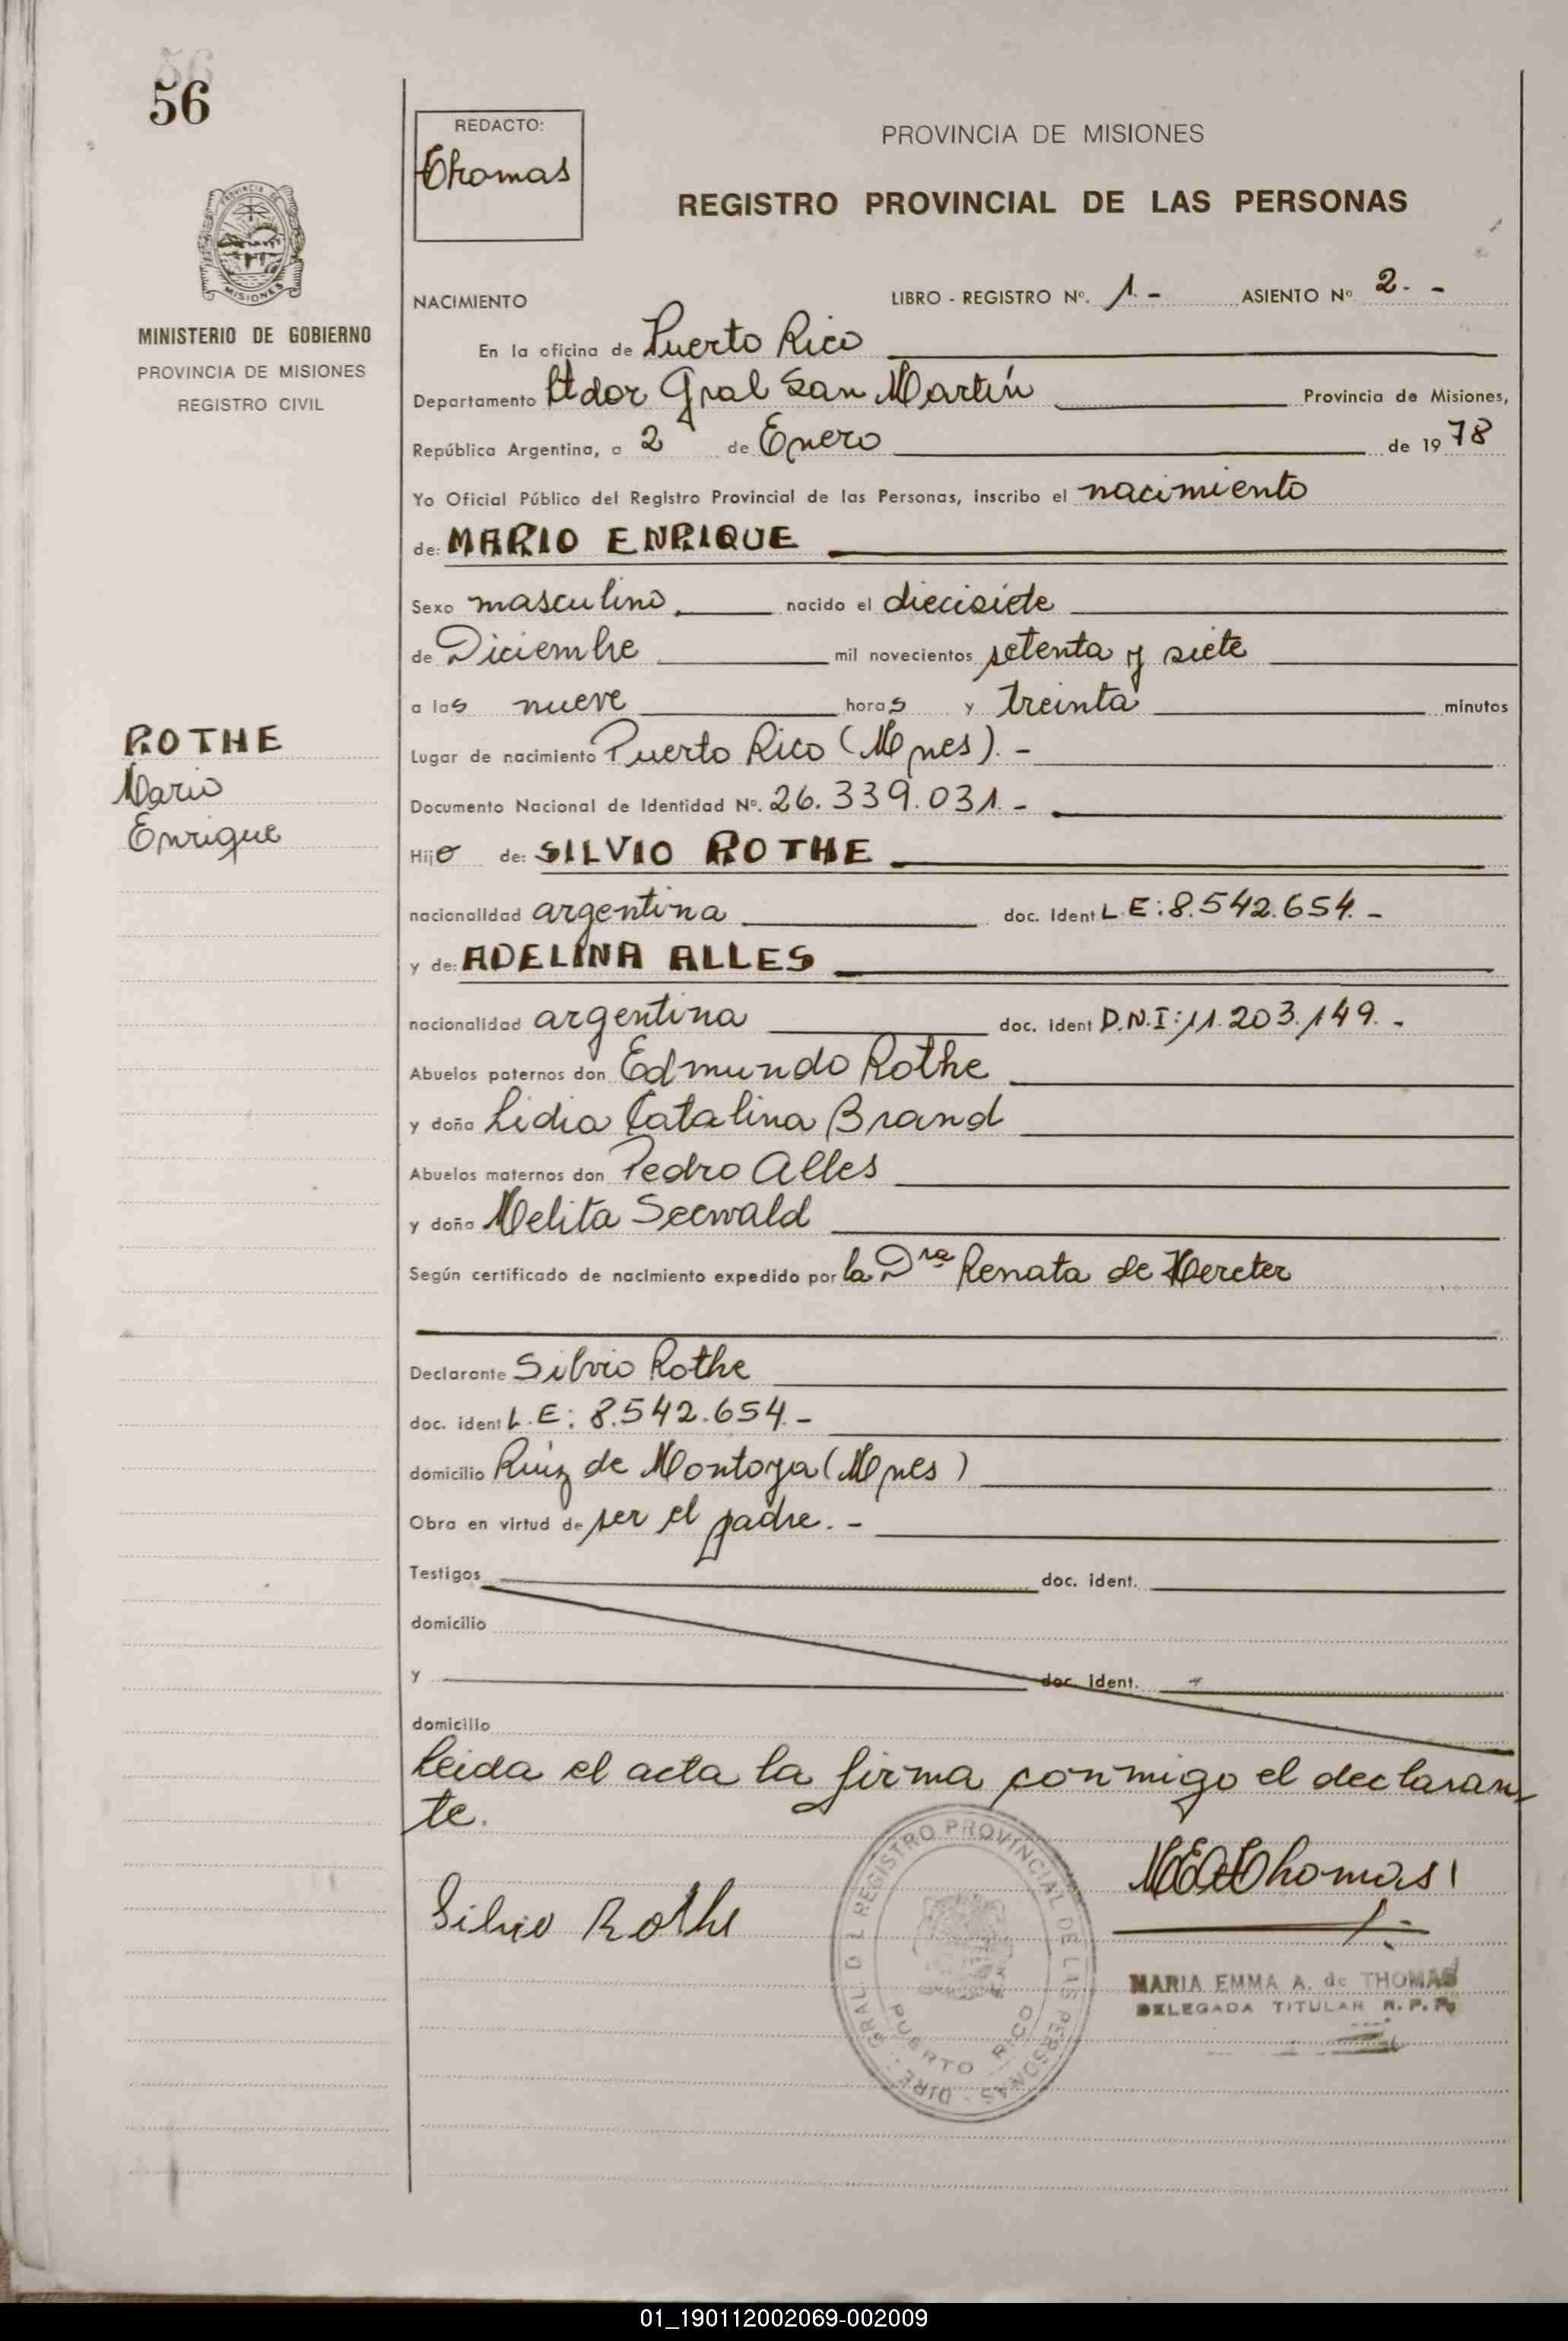 56
REDACTO:
Thomas
PROVINCIA DE MISIONES
REGISTRO PROVINCIAL DE LAS PERSONAS
MINISTERIO DE GOBIERNO
PROVINCIA DE MISIONES
REGISTRO CIVIL
NACIMIENTO LIBRO - REGISTRO Nº. 1.- ASIENTO Nº 2.-
En la oficina de Puerto Rico
Departamento Ltdor Gral San Martín Provincia de Misiones,
República Argentina, a 2 de Enero de 1978
Yo Oficial Público del Registro Provincial de las Personas, inscribo el nacimiento
de: MARIO ENRIQUE
Sexo masculino nacido el diecisiete
de Diciembre mil novecientos setenta y siete
a las nueve horas y treinta minutos
ROTHE
Mario
Enrique
Lugar de nacimiento Puerto Rico (Mnes).-
Documento Nacional de Identidad Nº. 26.339.031.-
Hijo de: SILVIO ROTHE
nacionalidad argentina doc. Ident L.E:8.542.654.-
y de: ADELINA ALLES
nacionalidad argentina doc. ident D.N.I:11.203.149.-
Abuelos paternos don Edmundo Rothe
y doña Lidia Catalina Brand
Abuelos maternos don Pedro Alles
y doña Melita Seewald
Según certificado de nacimiento expedido por la Dra Renata de Hereter
Declarante Silvio Rothe
doc. ident L.E: 8.542.654.-
domicilio Ruiz de Montoya (Mnes)
Obra en virtud de ser el padre.-
Testigos doc. ident.
domicilio
y doc. ident.
domicilio
Leida el acta la firma conmigo el declaran
te.
Silvio Rothe
MEAThomas
MARIA EMMA A. de THOMAS
DELEGADA TITULAR R.P.P.
DIRE. GRAL. DEL REGISTRO PROVINCIAL DE LAS PERSONAS
PUERTO RICO
01_190112002069-002009